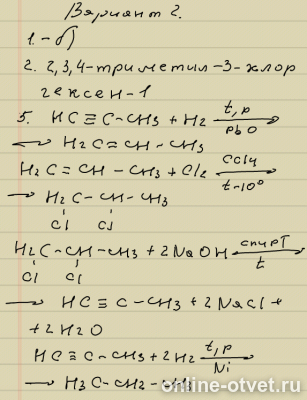 Вариант 2.
1. – б)
2. 2,3,4-триметил-3-хлор
гексен-1
5. HC≡C-CH3 + H2 t,p PbO
→ H2C=CH-CH3
H2C=CH-CH3 + Cl2 CCl4 t-10°
→ H2C-CH-CH3
Cl Cl
H2C-CH-CH3 + 2NaOH спирт t
Cl Cl
→ HC≡C-CH3 + 2NaCl +
+ 2H2O
HC≡C-CH3 + 2H2 t,p Ni
→ H3C-CH2-CH3
online-otvet.ru